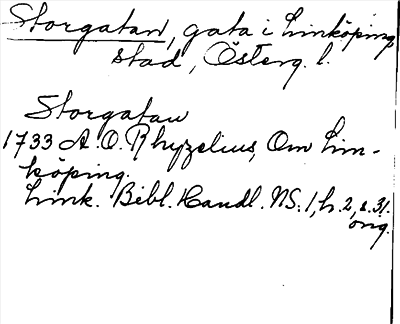 Storgatan, gata i Linköping
stad, Österg. l.
Storgatan
1733 A. O. Rhyzelius, Om Lin-
köping.
Link. Bibl. Handl. NS. 1, h. 2, s. 31.
orig.